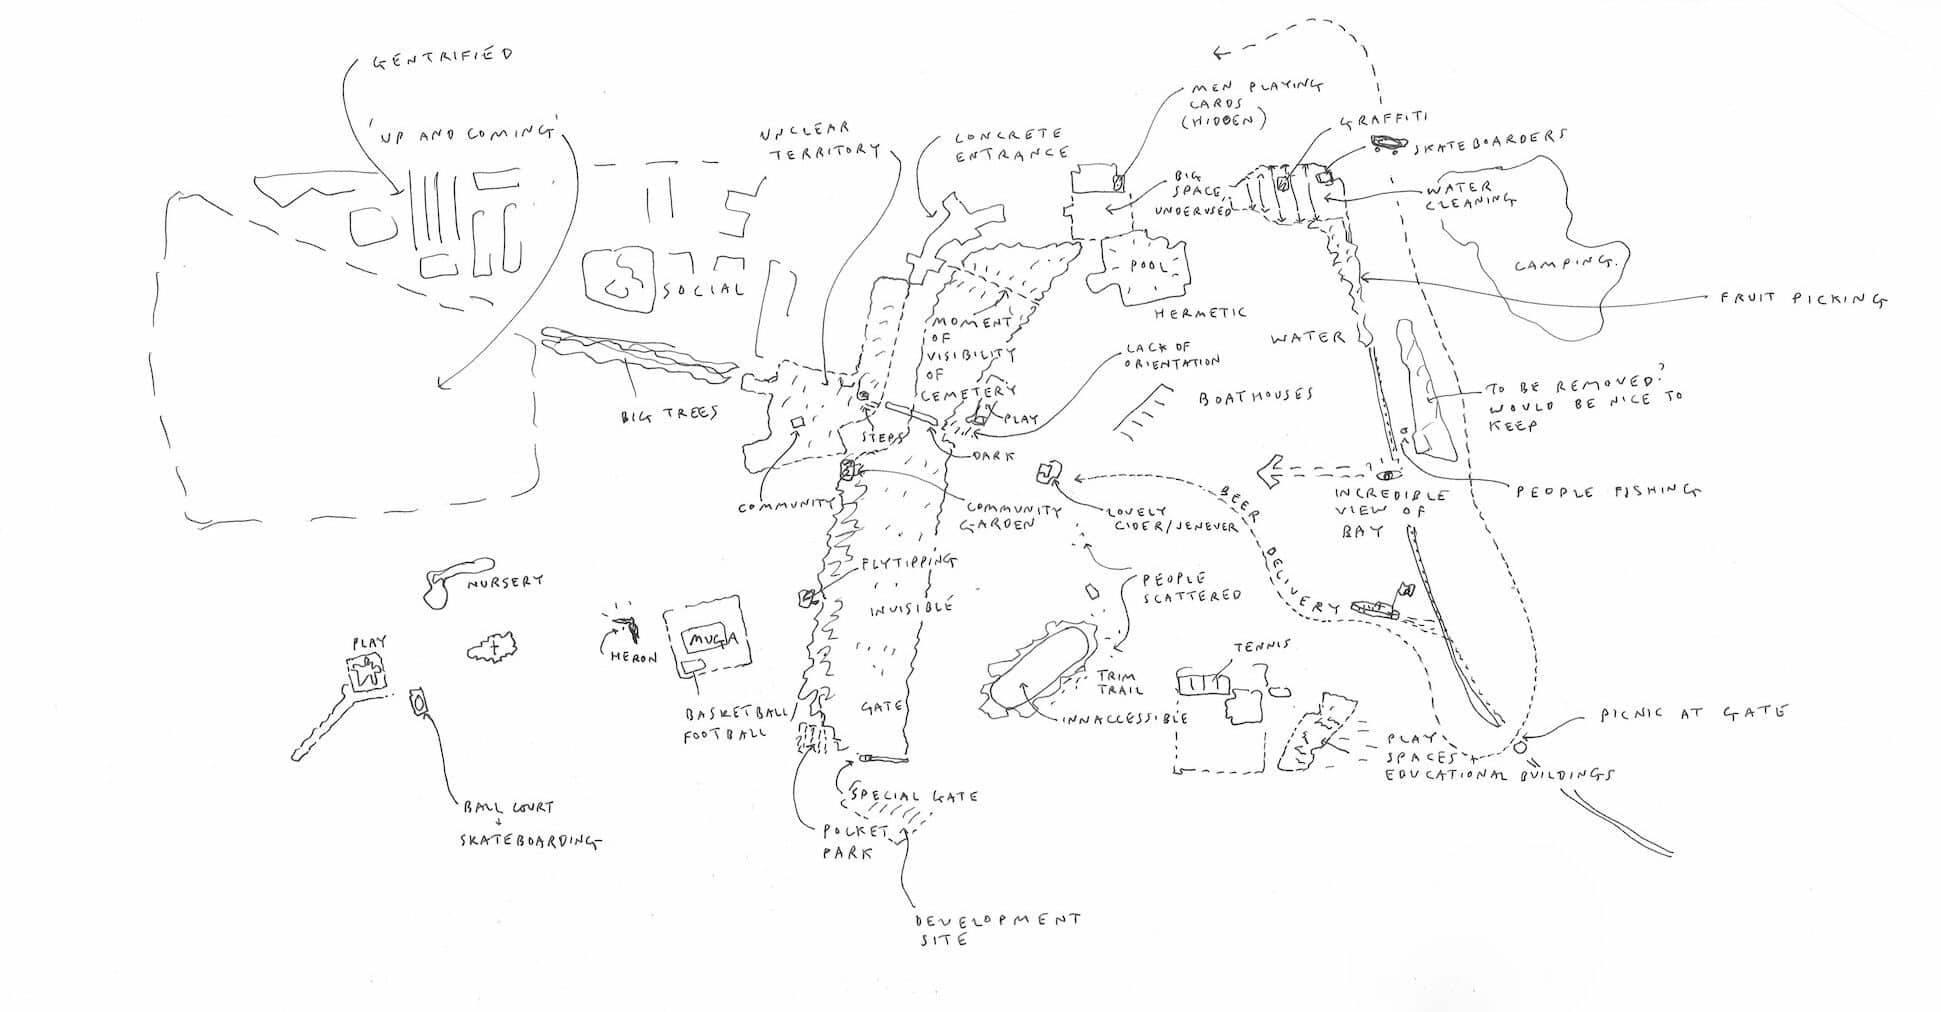 GENTRIFIED
'UP AND COMING'
UNCLEAR
TERRITORY
CONCRETE
ENTRANCE
MEN PLAYING
CARDS
(HIDDEN)
GRAFFITI
SKATEBOARDERS
BIG
SPACE,
UNDERUSED
WATER
CLEANING
POOL
HERMETIC
CAMPING.
FRUIT PICKING
SOCIAL
MOMENT
OF
VISIBILITY
OF
CEMETERY
WATER
LACK OF
ORIENTATION
BOATHOUSES
TO BE REMOVED?
WOULD BE NICE TO
KEEP
BIG TREES
STEPS
PLAY
DARK
COMMUNITY
COMMUNITY
GARDEN
LOVELY
CIDER/JENEVER
BEER
DELIVERY
INCREDIBLE
VIEW OF
BAY
PEOPLE FISHING
FLYTIPPING
INVISIBLE
PEOPLE
SCATTERED
NURSERY
HERON
MUGA
PLAY
TENNIS
TRIM
TRAIL
INNACCESSIBLE
BASKETBALL/
FOOTBALL
GATE
PICNIC AT GATE
PLAY
SPACES +
EDUCATIONAL BUILDINGS
SPECIAL GATE
POCKET
PARK
BALL COURT
+
SKATEBOARDING
DEVELOPMENT
SITE